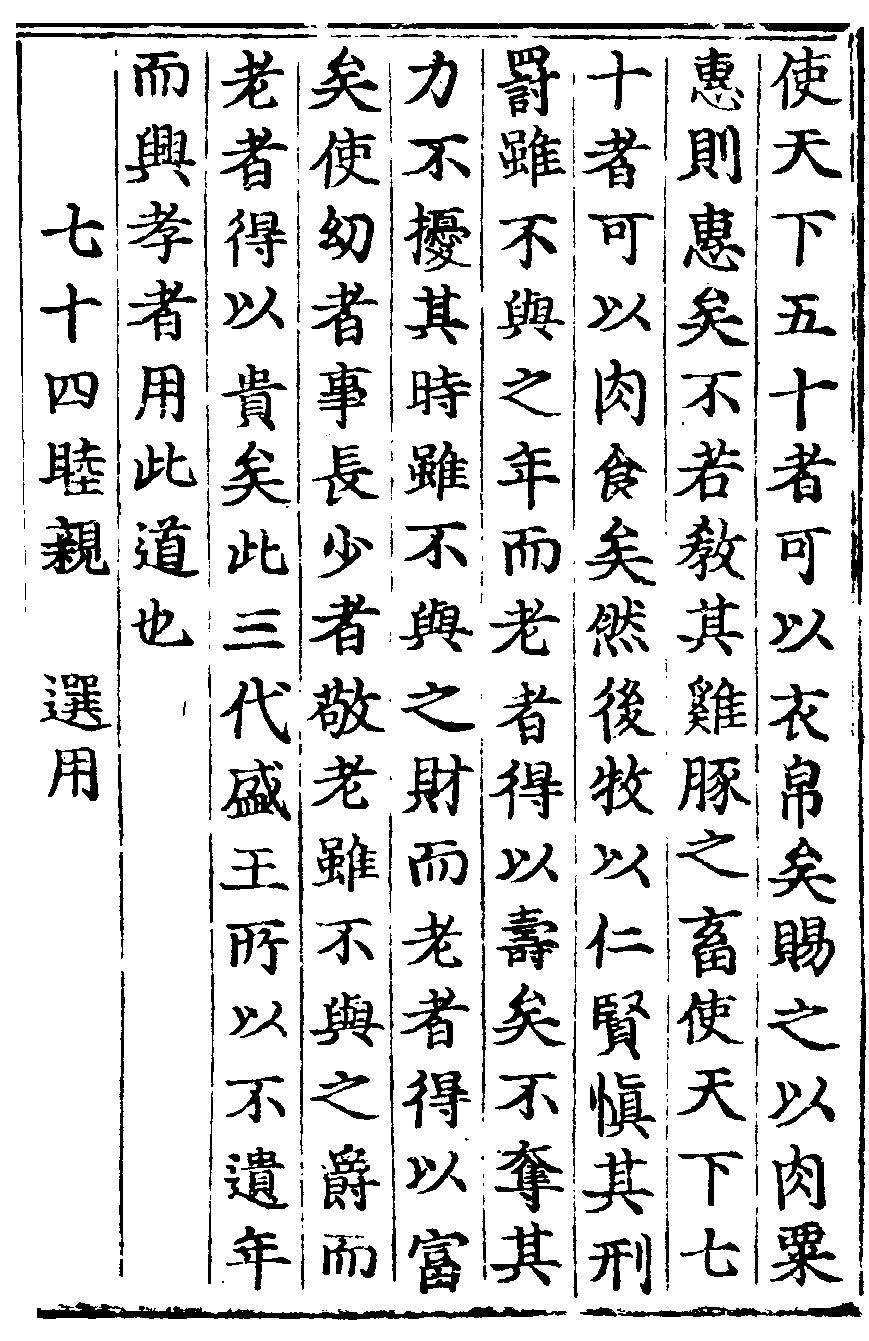 使天下五十者可以衣帛矣賜之以肉粟
惠則惠矣不若教其雞豚之畜使天下七
十者可以肉食矣然後牧以仁賢慎其刑
罰雖不與之年而老者得以壽矣不奪其
力不擾其時雖不與之財而老者得以富
矣使幼者事長少者敬老雖不與之爵而
老者得以貴矣此三代盛王所以不遺年
而興孝者用此道也
七十四睦親　選用